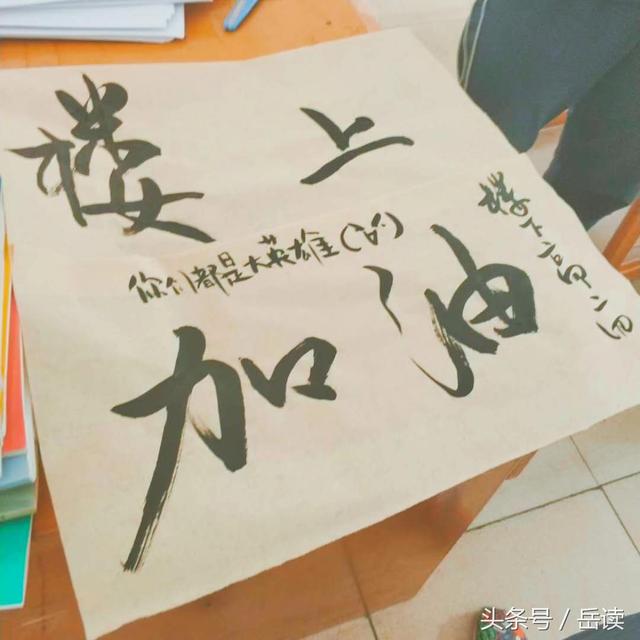 楼上
你们都是大英雄
加油
楼下
头条号 / 岳读